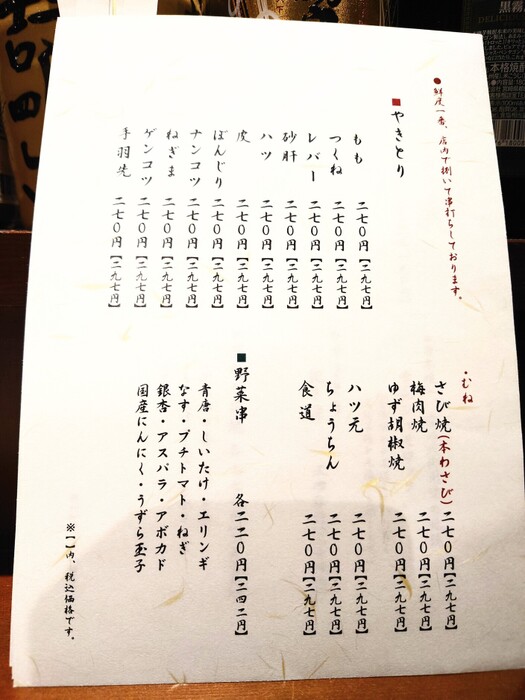 ●鮮度一番、店内で捌いて串打ちしております。
■やきとり
もも 二七〇円【二九七円】
つくね 二七〇円【二九七円】
レバー 二七〇円【二九七円】
砂肝 二七〇円【二九七円】
ハツ 二七〇円【二九七円】
皮 二七〇円【二九七円】
ぼんじり 二七〇円【二九七円】
ナンコツ 二七〇円【二九七円】
ねぎま 二七〇円【二九七円】
ゲンコツ 二七〇円【二九七円】
手羽先 二七〇円【二九七円】
・むね
さび焼(本わさび) 二七〇円【二九七円】
梅肉焼 二七〇円【二九七円】
ゆず胡椒焼 二七〇円【二九七円】
ハツ元 二七〇円【二九七円】
ちょうちん 二七〇円【二九七円】
食道 二七〇円【二九七円】
■野菜串 各二二〇円【二四二円】
青唐・しいたけ・エリンギ
なす・プチトマト・ねぎ
銀杏・アスパラ・アボカド
国産にんにく・うずら玉子
※【】内、税込価格です。
本格焼酎